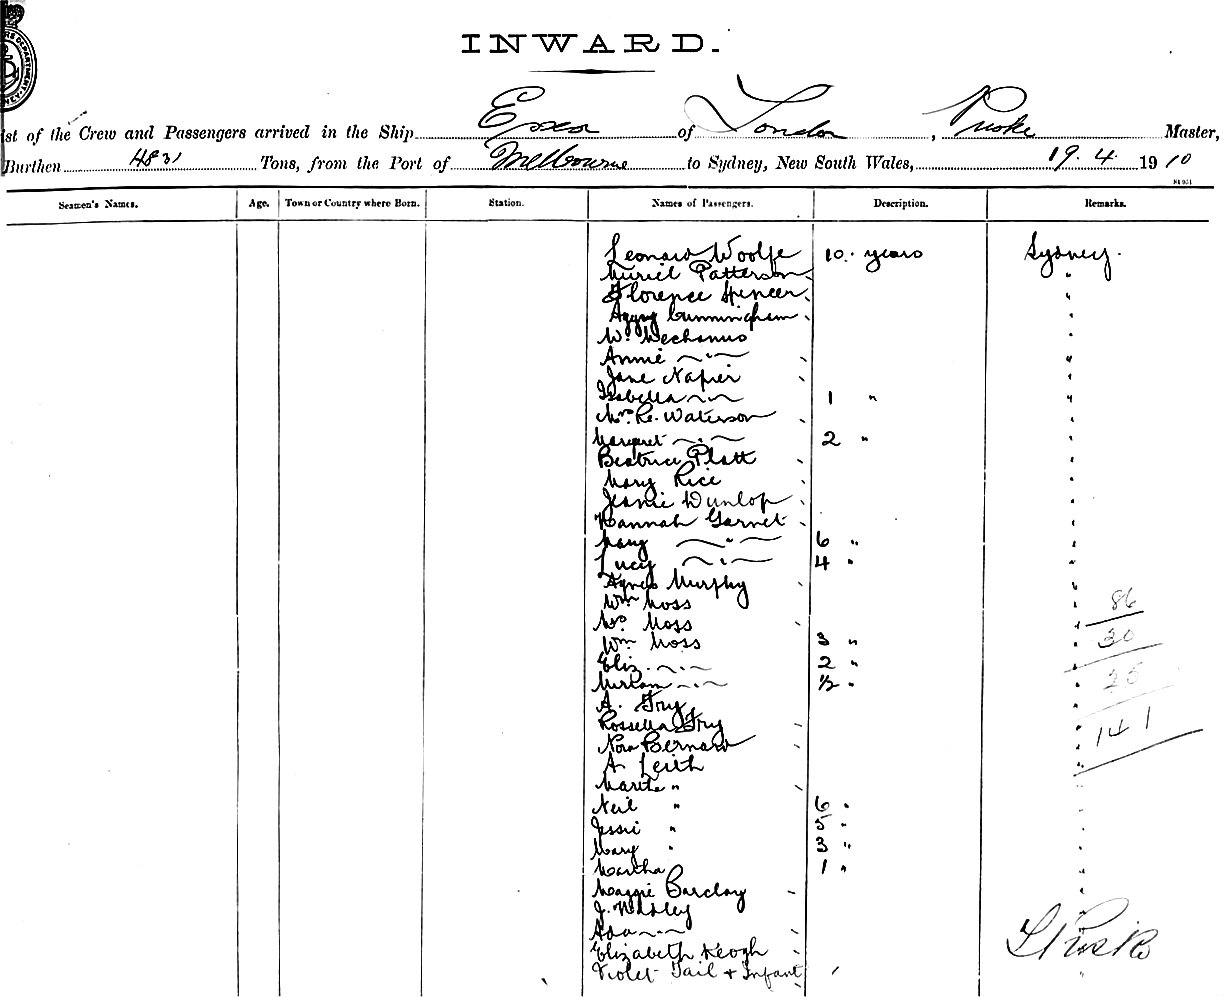 INWARD.
st of the Crew and Passengers arrived in the Ship Essex of London, Puske Master,
Burthen 4831 Tons, from the Port of Melbourne to Sydney, New South Wales, 19.4.1910
Seamen's Names. Age. Town or Country where Born. Station. Names of Passengers. Description. Remarks.
Leonard Woolfe 10. years Sydney.
Muriel Patterson "
Florence Spencer "
Cunningham "
W. "
Annie " "
Jane Napier "
Isabella " 1 " "
Mrs. Re. Waterson "
Margaret " 2 " "
Beatrice Platt "
Mary Rice "
Jeanie Dunlop "
Hannah Garnet "
Mary " 6 " "
Lucy " 4 " "
Agnes Murphy "
Wm Moss " 86
Mrs. Moss "
Wm Moss 3 " " 30
Eliz. " 2 " "
Miriam " ½ " " 25
A. Fry "
Rossella Fry " 141
Nora Bernard "
A. Leith "
" "
Neil " 6 " "
Jessie " 5 " "
Mary " 3 " "
Martha 1 " "
Maggie Barclay "
J. "
Ada " "
Elizabeth Keogh
Violet Tail + Infant "